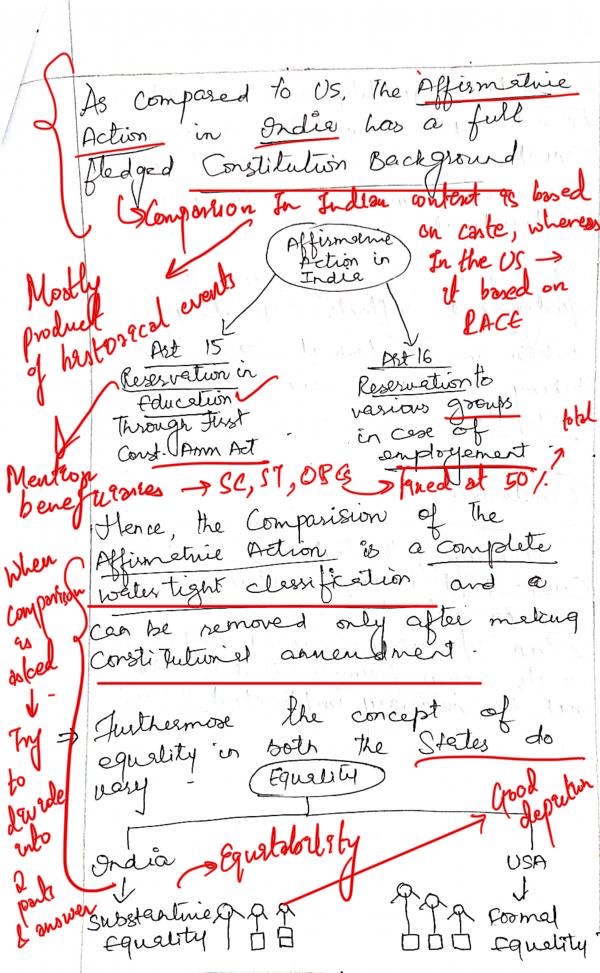 As compared to US, the Affirmative
Action in India has a full
fledged Constitution Background
↳ Comparsion In Indian context is based
on caste, whereas
In the US →
it based on
RACE
Mostly
product
of historical events
Affirmative
Action in
India
Art 15
Reservation in
Education
Through First
Const. Amn Act
Art 16
Reservation to
various groups
in case of
employement
total
Mention
beneficiaries → SC, ST, OBCs → fixed at 50%
Hence, the Comparision of the
Affirmative Action is a complete
water tight classification and a
can be removed only after making
Constitutional amendment.
When
comparison
is
asked
↓
Try
to
divide
into
2
parts
& answer
⇒ Furthermore the concept of
equality in both the States do
vary -
Equality
Good
depiction
India
→ Equitability
USA
Substantive
Equality
Formal
Equality